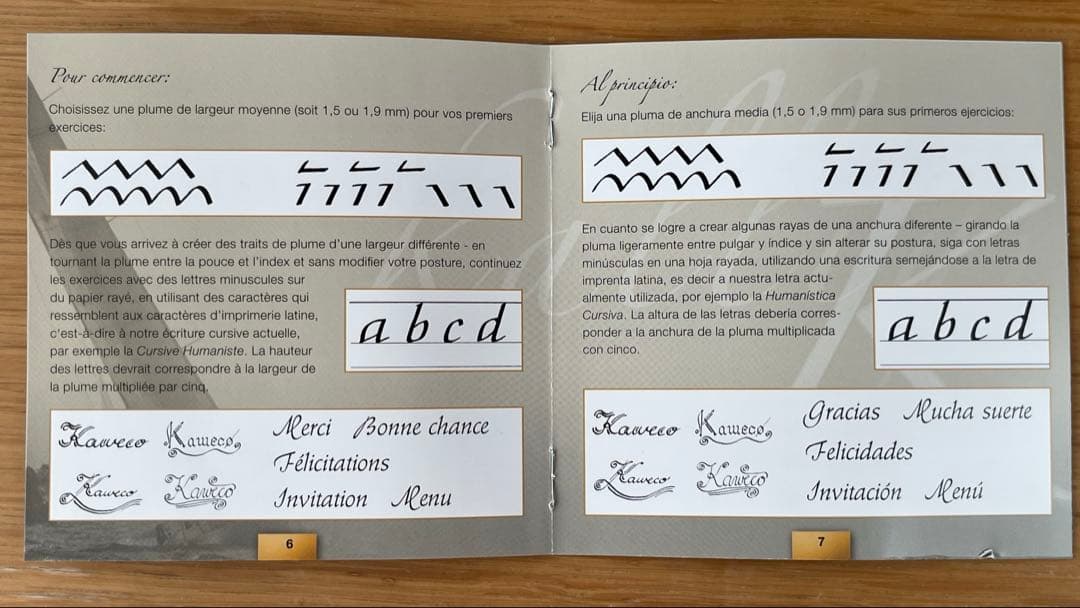 Pour commencer:
Choisissez une plume de largeur moyenne (soit 1,5 ou 1,9 mm) pour vos premiers
exercices:
Dès que vous arrivez à créer des traits de plume d'une largeur différente - en
tournant la plume entre la pouce et l'index et sans modifier votre posture, continuez
les exercices avec des lettres minuscules sur
du papier rayé, en utilisant des caractères qui
ressemblent aux caractères d'imprimerie latine,
c'est-à-dire à notre écriture cursive actuelle,
par exemple la Cursive Humaniste. La hauteur
des lettres devrait correspondre à la largeur de
la plume multipliée par cinq.
a b c d
Kaweco Kaweco
Kaweco Kaweco
Merci Bonne chance
Félicitations
Invitation Menu
6
Al principio:
Elija una pluma de anchura media (1,5 o 1,9 mm) para sus primeros ejercicios:
En cuanto se logre a crear algunas rayas de una anchura diferente – girando la
pluma ligeramente entre pulgar y índice y sin alterar su postura, siga con letras
minúsculas en una hoja rayada, utilizando una escritura semejándose a la letra de
imprenta latina, es decir a nuestra letra actu-
almente utilizada, por ejemplo la Humanística
Cursiva. La altura de las letras debería corres-
ponder a la anchura de la pluma multiplicada
con cinco.
a b c d
Kaweco Kaweco
Kaweco Kaweco
Gracias Mucha suerte
Felicidades
Invitación Menú
7